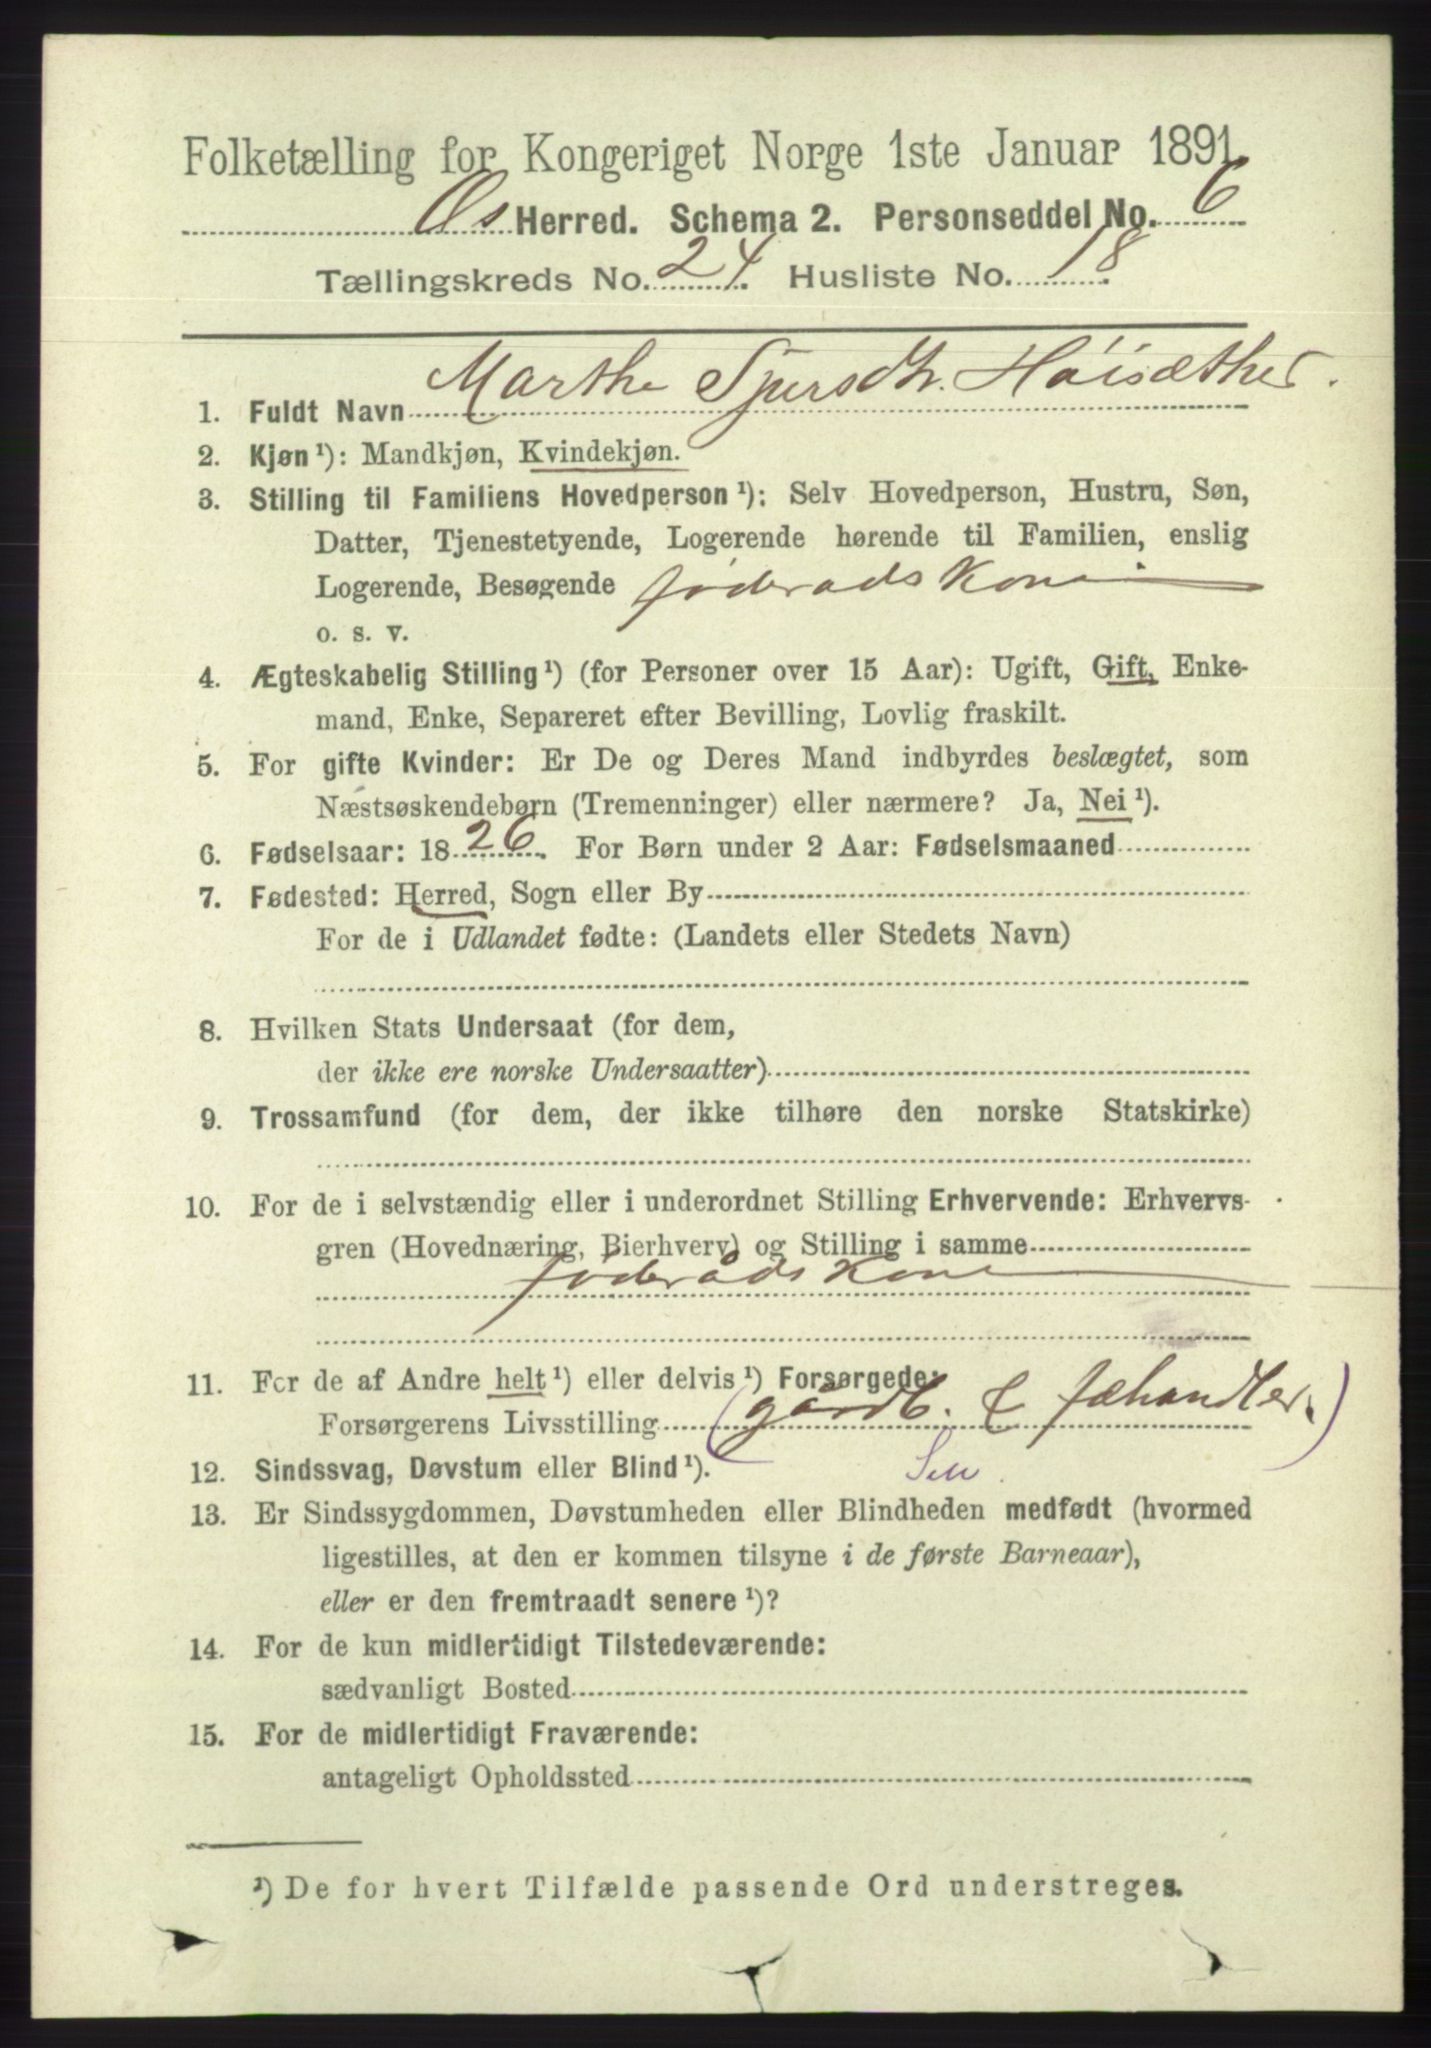 Folketælling for Kongeriget Norge 1ste Januar 1891.
Os Herred. Schema 2. Personseddel No. 6
Tællingskreds No. 24. Husliste No. 18.
1. Fuldt Navn Marthe Sjursdtr. Höisæther.
2. Kjøn ¹): Mandkjøn, Kvindekjøn.
3. Stilling til Familiens Hovedperson ¹): Selv Hovedperson, Hustru, Søn,
Datter, Tjenestetyende, Logerende hørende til Familien, enslig
Logerende, Besøgende föderadskone
o. s. v.
4. Ægteskabelig Stilling ¹) (for Personer over 15 Aar): Ugift, Gift, Enke-
mand, Enke, Separeret efter Bevilling, Lovlig fraskilt.
5. For gifte Kvinder: Er De og Deres Mand indbyrdes beslægtet, som
Næstsøskendebørn (Tremenninger) eller nærmere? Ja, Nei ¹).
6. Fødselsaar: 1826. For Børn under 2 Aar: Fødselsmaaned
7. Fødested: Herred, Sogn eller By
For de i Udlandet fødte: (Landets eller Stedets Navn)
8. Hvilken Stats Undersaat (for dem,
der ikke ere norske Undersaatter)
9. Trossamfund (for dem, der ikke tilhøre den norske Statskirke)
10. For de i selvstændig eller i underordnet Stilling Erhvervende: Erhvervs-
gren (Hovednæring, Bierhverv) og Stilling i samme
föderådskone
11. For de af Andre helt ¹) eller delvis ¹) Forsørgede:
Forsørgerens Livsstilling (gårdb. & fæhandler.)
12. Sindssvag, Døvstum eller Blind ¹).
13. Er Sindssygdommen, Døvstumheden eller Blindheden medfødt (hvormed
ligestilles, at den er kommen tilsyne i de første Barneaar),
eller er den fremtraadt senere ¹)?
14. For de kun midlertidigt Tilstedeværende:
sædvanligt Bosted
15. For de midlertidigt Fraværende:
antageligt Opholdssted
¹) De for hvert Tilfælde passende Ord understreges.